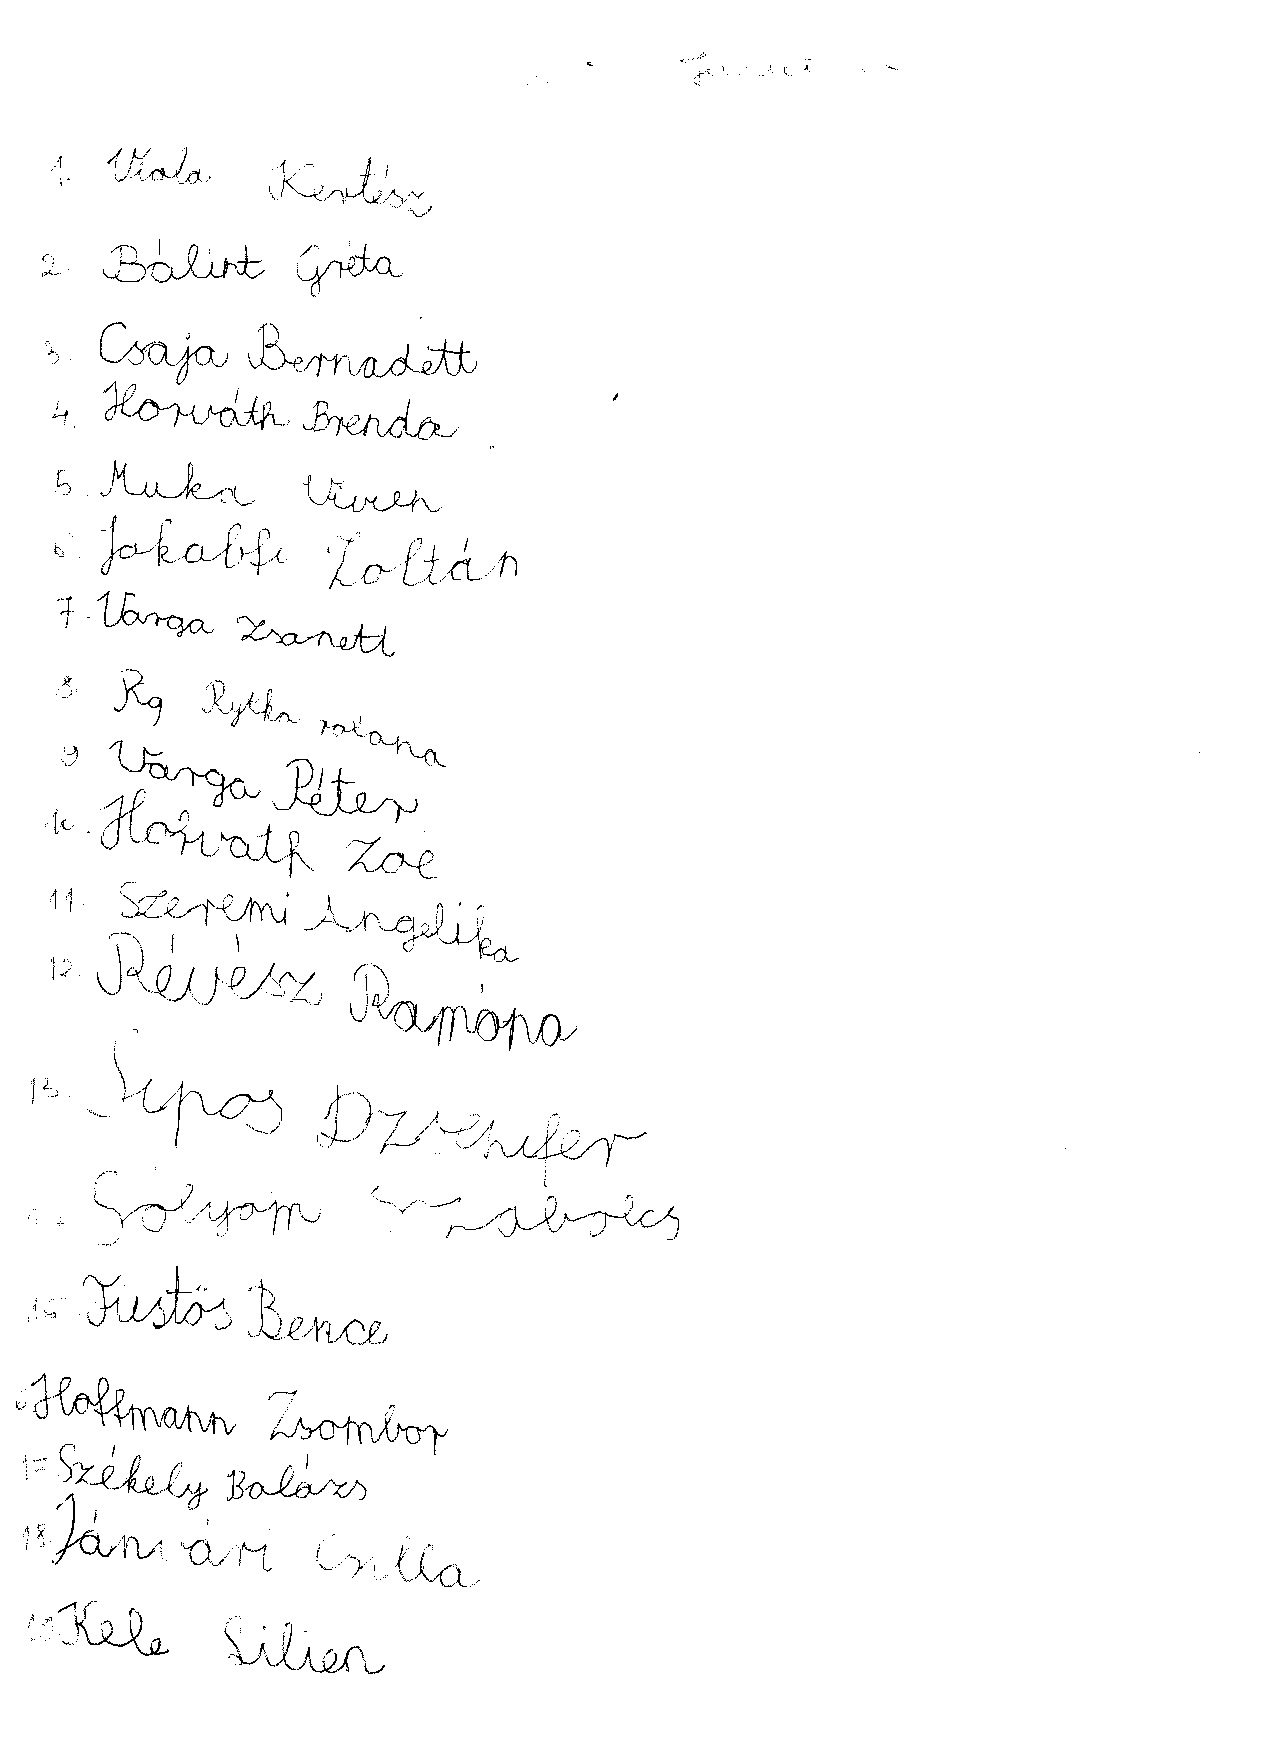 1. Viola Kertész
2. Bálint Gréta
3. Csaja Bernadett
4. Horváth Brenda
5. Muka Vivien
6. Jakabfi Zoltán
7. Varga Zsanett
8. Rg Rytka
9. Varga Péter
10. Horvath Zoe
11. Szeremi Angelika
12. Révész Ramóna
13. Sipos Dzsenifer
Sólyom Szabolcs
15. Füstös Bence
Hoffmann Zsombor
17 Székely Balázs
18. Jánvári Csilla
Kele Lilien